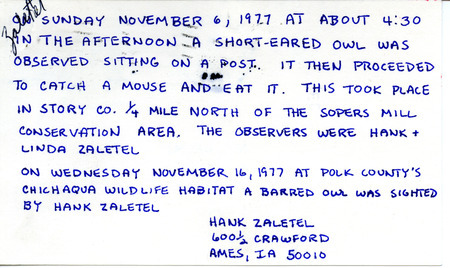 Zaletel
SUNDAY NOVEMBER 6, 1977 AT ABOUT 4:30
IN THE AFTERNOON A SHORT-EARED OWL WAS
OBSERVED SITTING ON A POST. IT THEN PROCEEDED
TO CATCH A MOUSE AND EAT IT. THIS TOOK PLACE
IN STORY CO. 1/4 MILE NORTH OF THE SOPERS MILL
CONSERVATION AREA. THE OBSERVERS WERE HANK +
LINDA ZALETEL
ON WEDNESDAY NOVEMBER 16, 1977 AT POLK COUNTY'S
CHICHAQUA WILDLIFE HABITAT A BARRED OWL WAS SIGHTED
BY HANK ZALETEL
HANK ZALETEL
600 1/2 CRAWFORD
AMES, IA 50010